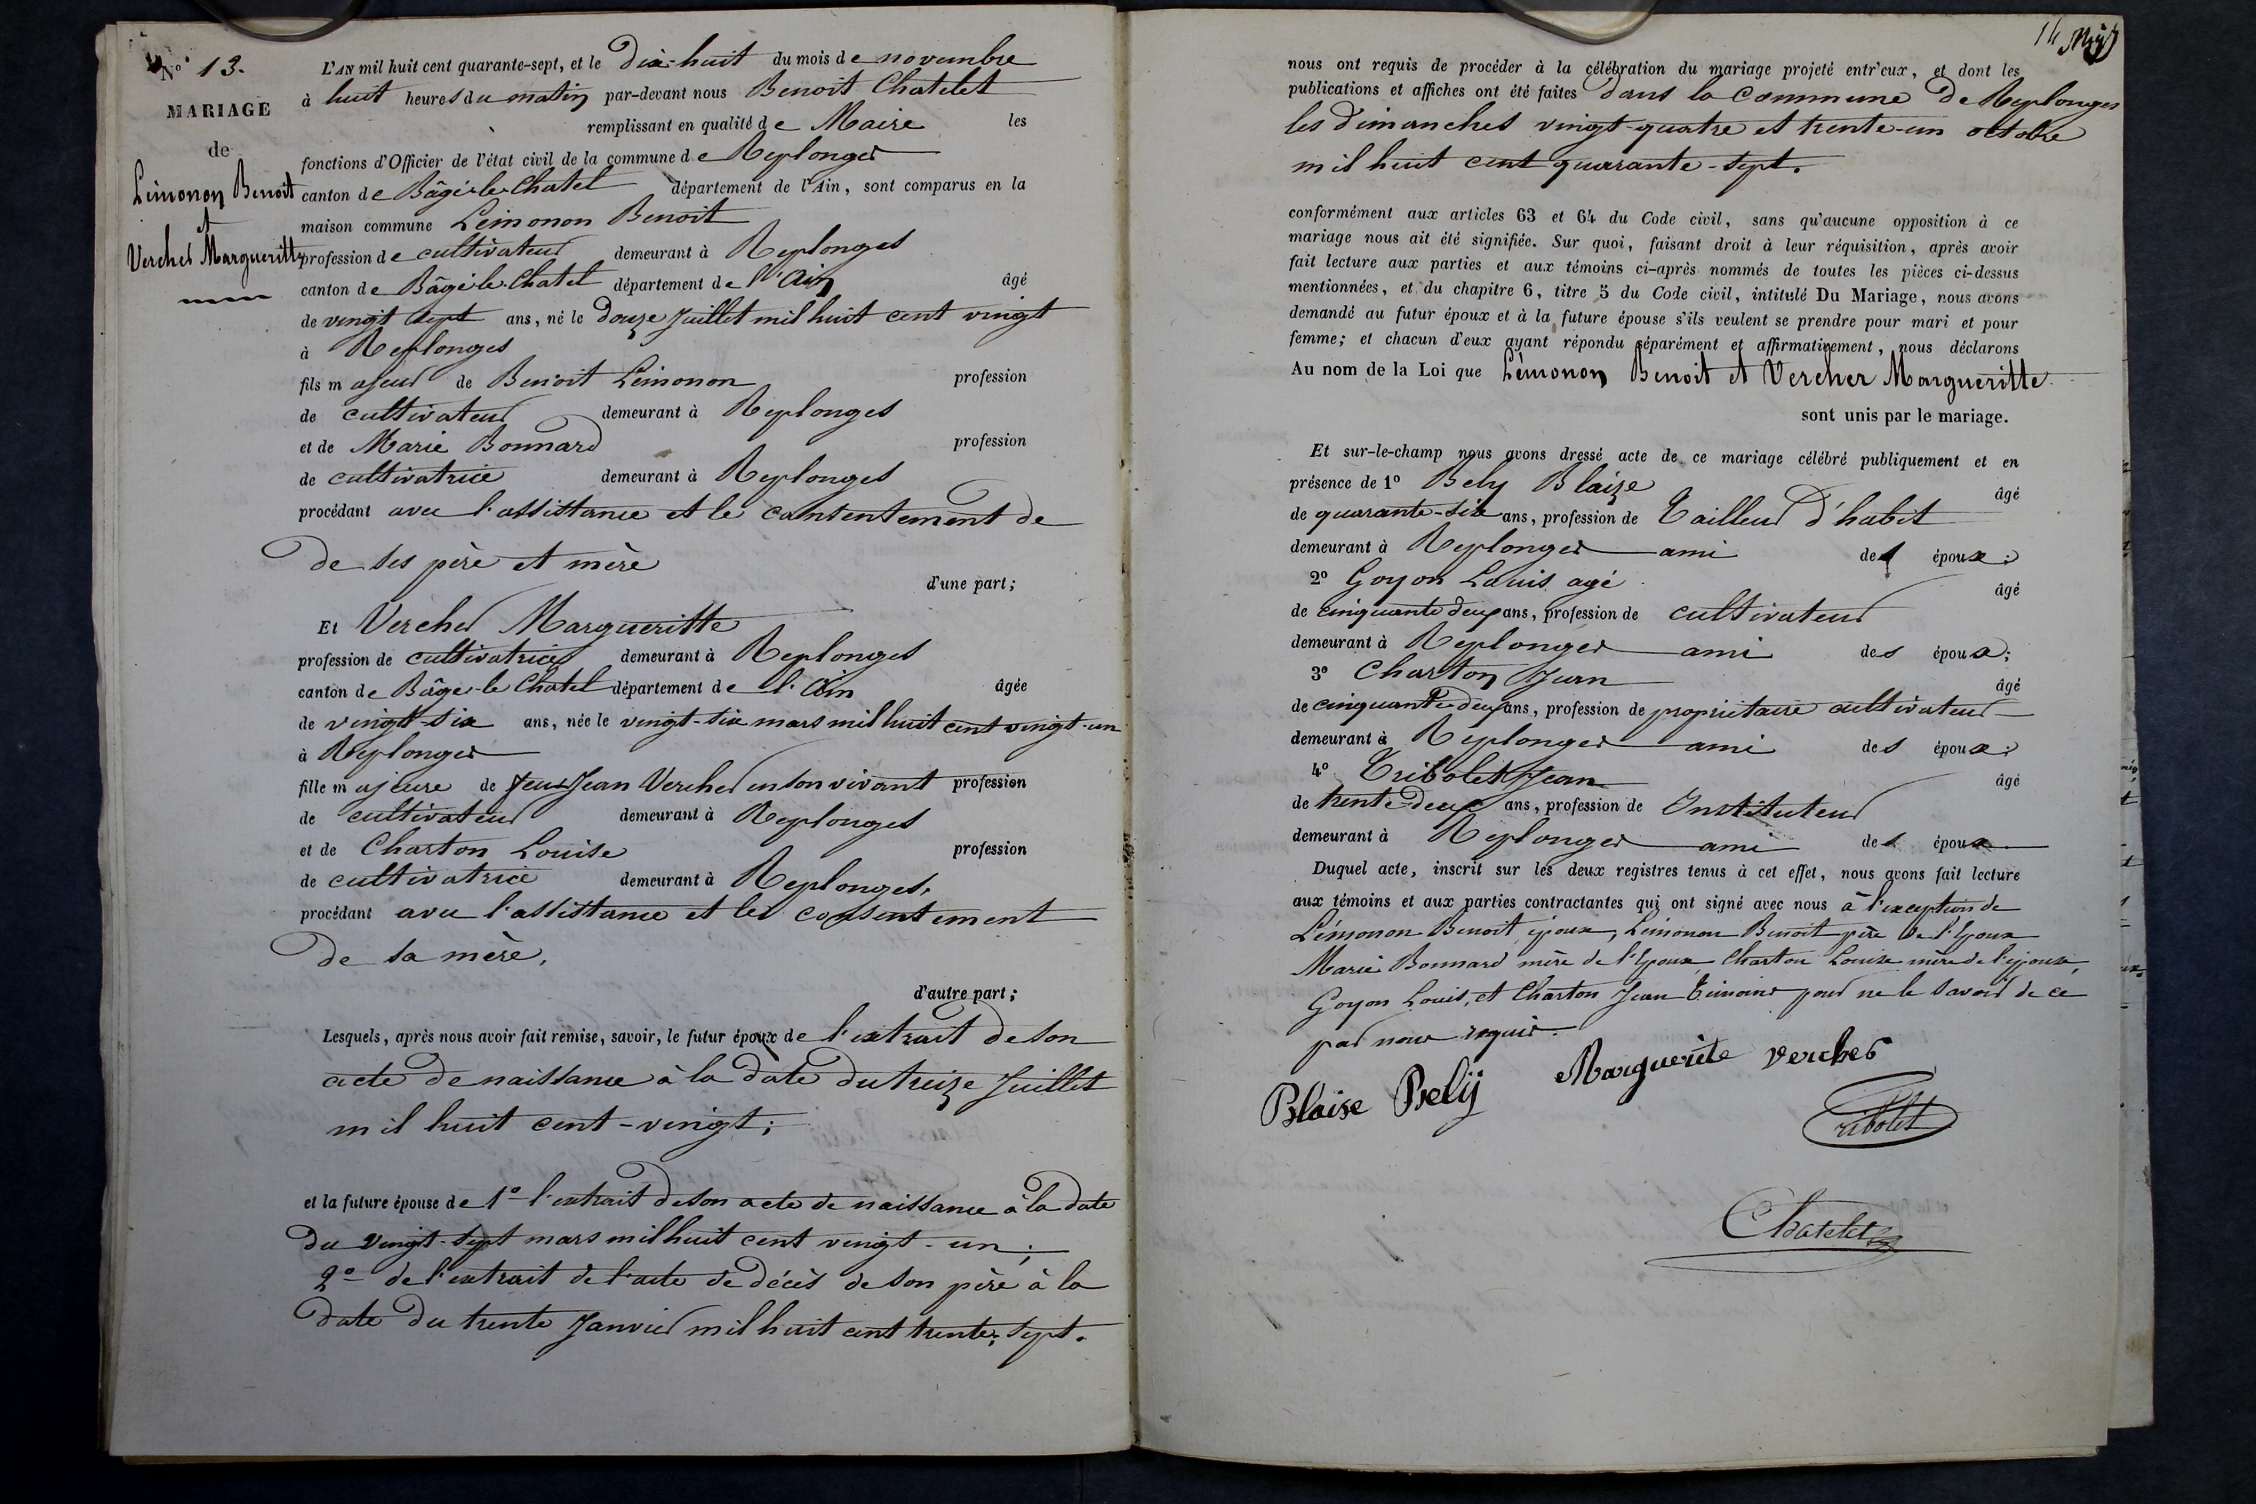 N° 13.
MARIAGE
de
Lémonon Benoit
et
Vercher Margueritte
L'AN mil huit cent quarante-sept, et le Dix-huit du mois de novembre
à huit heures du matin par-devant nous Benoit Chatelet
remplissant en qualité de Maire les
fonctions d'Officier de l'état civil de la commune de Replonges
canton de Bâgé-le-Chatel département de l'Ain, sont comparus en la
maison commune Lémonon Benoit
profession de cultivateur demeurant à Replonges
canton de Bâgé-le-Chatel département de l'Ain âgé
de vingt sept ans, né le Douze Juillet mil huit cent vingt
à Replonges
fils majeur de Benoit Lémonon profession
de cultivateur demeurant à Replonges
et de Marie Bonnard profession
de cultivatrice demeurant à Replonges
procédant avec l'assistance et le consentement de
de ses père et mère
d'une part;
Et Vercher Margueritte
profession de cultivatrice demeurant à Replonges
canton de Bâgé-le-Chatel département de l'Ain âgée
de vingt-six ans, née le vingt-six mars mil huit cent vingt-un
à Replonges
fille majeure de feu Jean Vercher en son vivant profession
de cultivateur demeurant à Replonges
et de Charton Louise profession
de cultivatrice demeurant à Replonges,
procédant avec l'assistance et le consentement
De sa mère,
d'autre part;
Lesquels, après nous avoir fait remise, savoir, le futur époux de l'extrait de son
acte de naissance à la date du treize Juillet
mil huit cent-vingt;
et la future épouse de 1° l'extrait de son acte de naissance à la date
du vingt-sept mars mil huit cent vingt-un;
2° de l'extrait de l'acte de décès de son père à la
date du trente Janvier mil huit cent trente-sept.
14
nous ont requis de procéder à la célébration du mariage projeté entr'eux, et dont les
publications et affiches ont été faites dans la commune De Replonges
les Dimanches vingt-quatre et trente-un octobre
mil huit cent quarante-sept.
conformément aux articles 63 et 64 du Code civil, sans qu'aucune opposition à ce
mariage nous ait été signifiée. Sur quoi, faisant droit à leur réquisition, après avoir
fait lecture aux parties et aux témoins ci-après nommés de toutes les pièces ci-dessus
mentionnées, et du chapitre 6, titre 5 du Code civil, intitulé Du Mariage, nous avons
demandé au futur époux et à la future épouse s'ils veulent se prendre pour mari et pour
femme; et chacun d'eux ayant répondu séparément et affirmativement, nous déclarons
Au nom de la Loi que Lémonon Benoit et Vercher Margueritte
sont unis par le mariage.
Et sur-le-champ nous avons dressé acte de ce mariage célébré publiquement et en
présence de 1° Bely Blaize âgé
de quarante-six ans, profession de Tailleur d'habit
demeurant à Replonges ami des époux;
2° Goyon Louis agé âgé
de cinquante deux ans, profession de cultivateur
demeurant à Replonges ami des époux;
3° Charton Jean âgé
de cinquante-deux ans, profession de propriétaire cultivateur
demeurant à Replonges ami des époux;
4° Tribolet Jean âgé
de trente-deux ans, profession de Instituteur
demeurant à Replonges ami des époux
Duquel acte, inscrit sur les deux registres tenus à cet effet, nous avons fait lecture
aux témoins et aux parties contractantes qui ont signé avec nous à l'exception de
Lémonon Benoit époux, Lémonon Benoit père de l'époux
Marie Bonnard mère de l'époux, Charton Louise mère de l'épouse,
Goyon Louis, et Charton Jean témoins pour ne le savoir de ce
par nous requis.
Blaise Bely Marguerite vercher
Tribolet
Chatelet